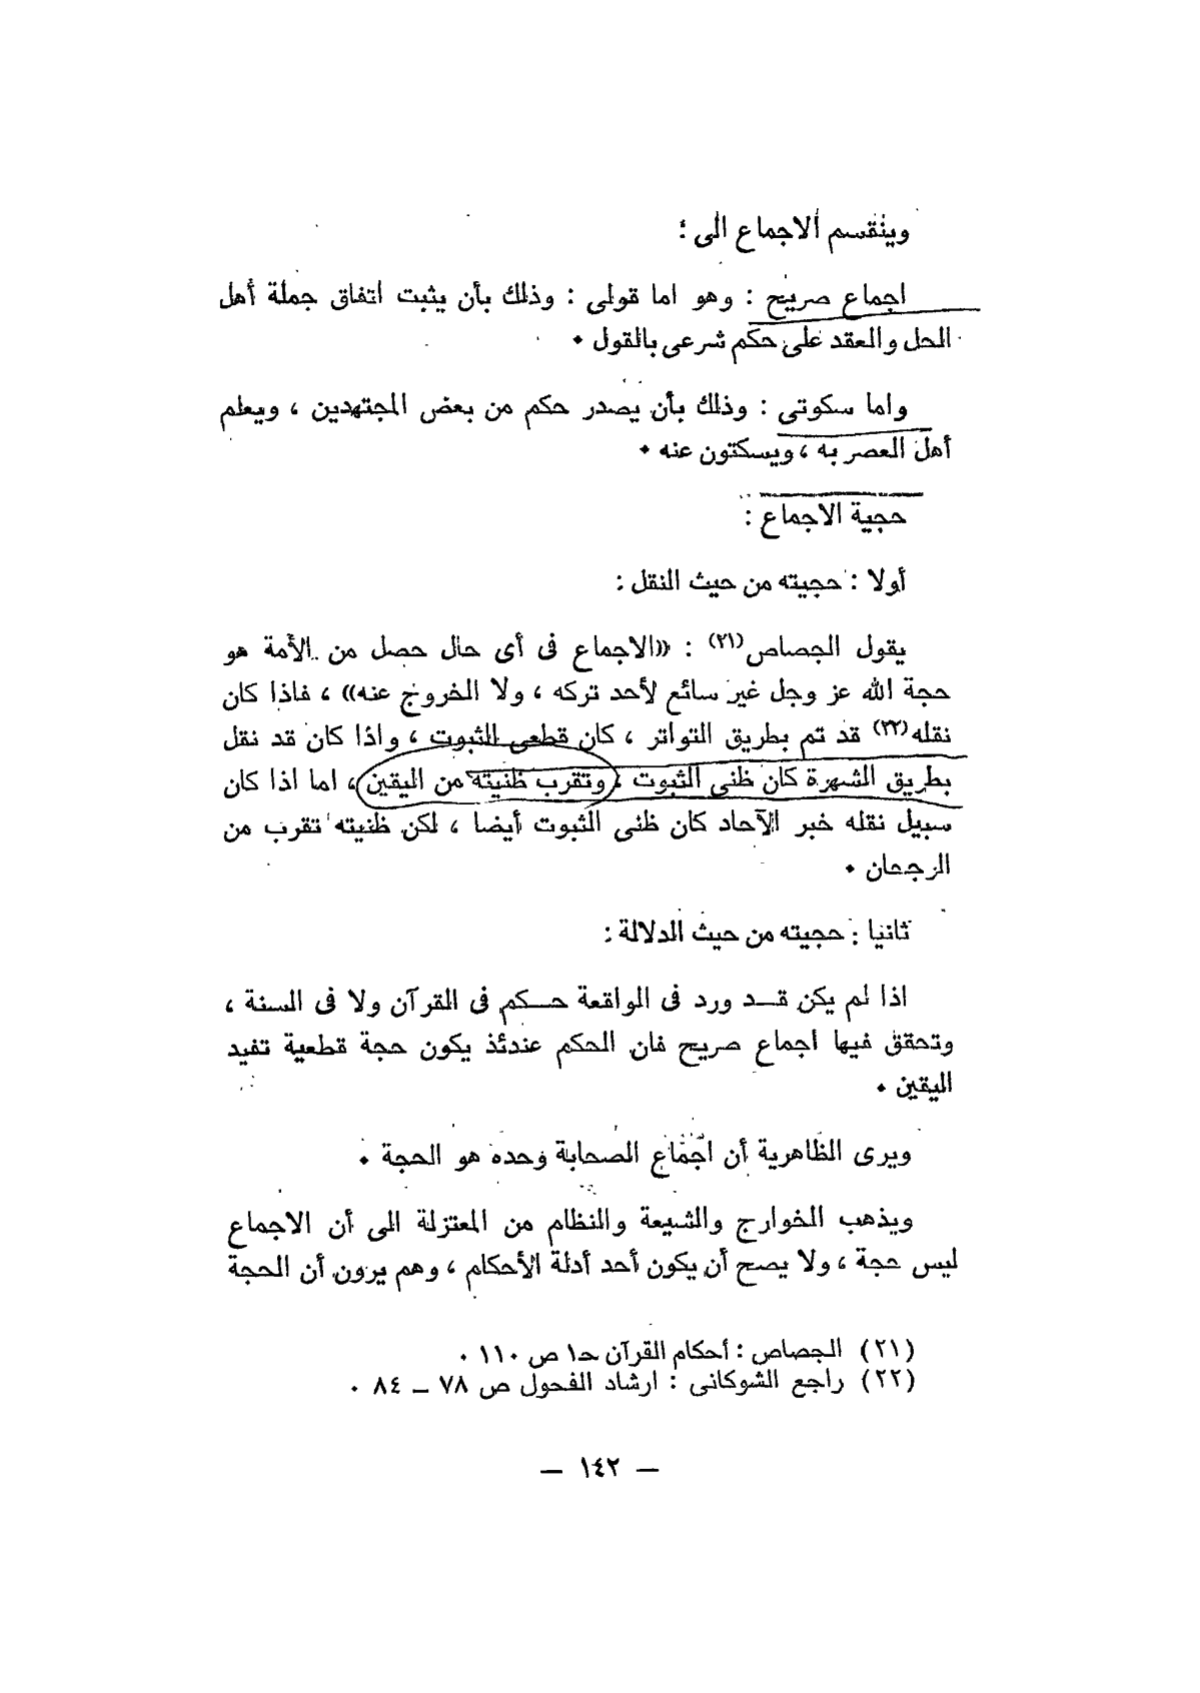 وينقسم الاجماع الى :
اجماع صريح : وهو اما قولى : وذلك بأن يثبت اتفاق جملة أهل
الحل والعقد على حكم شرعى بالقول ٠
واما سكوتى : وذلك بأن يصدر حكم من بعض المجتهدين ، ويعلم
أهل العصر به ، ويسكتون عنه ٠
حجية الاجماع :
أولا : حجيته من حيث النقل :
يقول الجصاص(٢١) : «الاجماع فى أى حال حصل من الأمة هو
حجة الله عز وجل غير سائع لأحد تركه ، ولا الخروج عنه» ، فاذا كان
نقله(٢٢) قد تم بطريق التواتر ، كان قطعى الثبوت ، واذا كان قد نقل
بطريق الشهرة كان ظنى الثبوت ، وتقرب ظنيته من اليقين ، اما اذا كان
سبيل نقله خبر الآحاد كان ظنى الثبوت أيضا ، لكن ظنيته تقرب من
الرجحان ٠
ثانيا : حجيته من حيث الدلالة :
اذا لم يكن قــد ورد فى الواقعة حــكم فى القرآن ولا فى السنة ،
وتحقق فيها اجماع صريح فان الحكم عندئذ يكون حجة قطعية تفيد
اليقين ٠
ويرى الظاهرية أن اجماع الصحابة وحده هو الحجة ٠
ويذهب الخوارج والشيعة والنظام من المعتزلة الى أن الاجماع
ليس حجة ، ولا يصح أن يكون أحد أدلة الأحكام ، وهم يرون أن الحجة
(٢١) الجصاص : أحكام القرآن حـ١ ص ١١٠ ٠
(٢٢) راجع الشوكانى : ارشاد الفحول ص ٧٨ ــ ٨٤ ٠
— ١٤٢ —